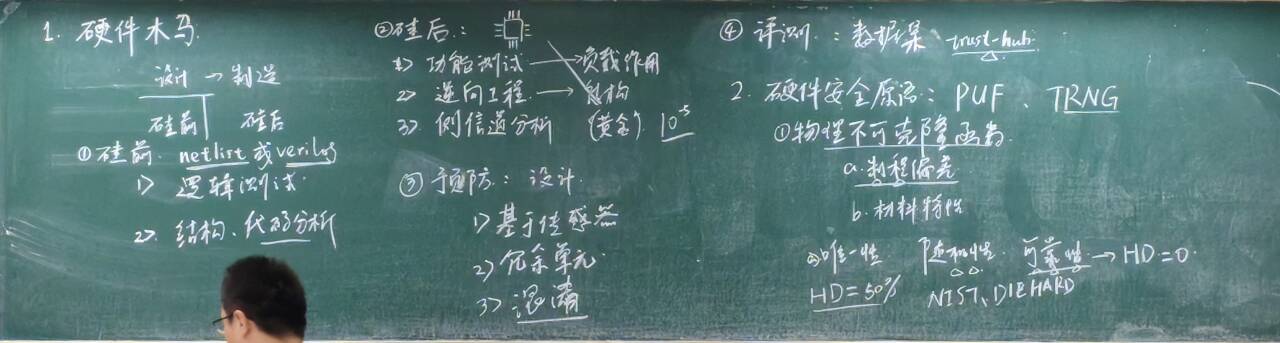 1. 硬件木马
设计 → 制造
硅前 硅后
①硅前. netlist 或 verilog
1> 逻辑测试
2>. 结构、代码分析
②硅后:
1> 功能测试 → 负载作用
2> 逆向工程. → 结构
3>. 侧信道分析 (黄金) 10⁻³
③预防: 设计.
1> 基于传感器
2) 冗余单元.
3> 混淆
④ 评测: 数据集 trust-hub.
2. 硬件安全原语: PUF、TRNG
①物理不可克隆函数
a. 制程偏差
b. 材料特性
②唯一性 随机性. 可靠性 → HD=0.
HD=50% NIST、DIEHARD